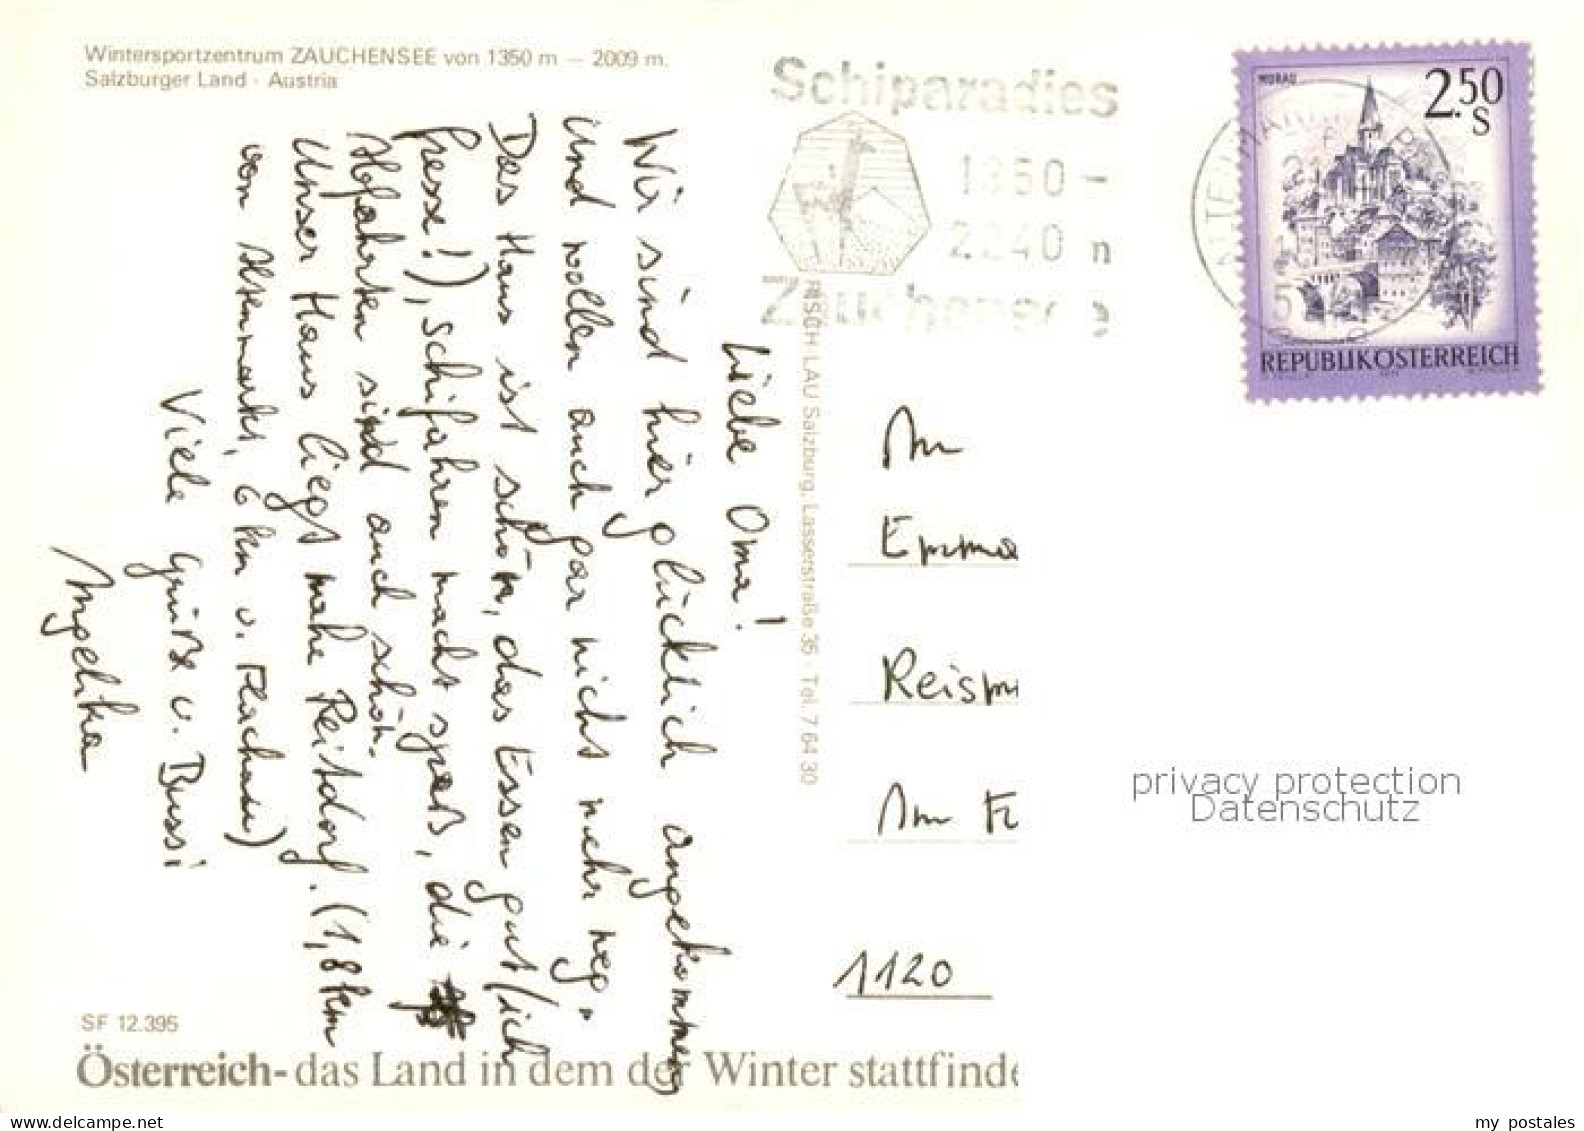 Wintersportzentrum ZAUCHENSEE von 1350 m — 2009 m.
Salzburger Land - Austria
Schiparadies
1350 -
2240 m
Zauchensee
MURAU
2.50
S
REPUBLIK ÖSTERREICH
Liebe Oma!
Wir sind hier glücklich angekommen
und wollen auch gar nicht mehr weg.
Das Haus ist schön, das Essen gut (ich
fresse!), Schifahren macht spaß, die
Abfahrten sind auch schön.
Unser Haus liegt nahe Reitdorf. (1,8 km
von Altenmarkt, 6 km v. Flachau)
Viele Grüße u. Bussi
Angelika
RISCH LAU Salzburg, Lasserstraße 36 · Tel. 7 64 30
An
Emma
Reism
Am F
1120
SF 12.395
Österreich- das Land in dem der Winter stattfinde
privacy protection
Datenschutz
www.delcampe.net
my_postales